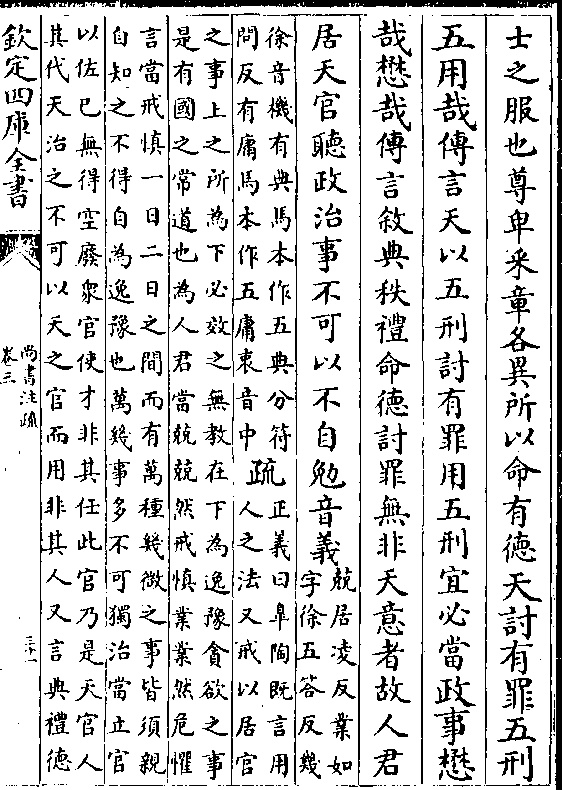 士之服也尊卑采章各異所以命有德天討有罪五刑
五用哉傳言天以五刑討有罪用五刑宜必當政事懋
哉懋哉傳言敘典秩禮命德討罪無非天意者故人君
居天官聽政治事不可以不自勉音義
兢居凌反業如
字徐五答反幾
徐音機有典馬本作五典分符
問反有庸馬本作五庸衷音中
疏
正義曰皋陶既言用
人之法又戒以居官
之事上之所為下必效之無教在下為逸豫貪欲之事
是有國之常道也為人君當兢兢然戒慎業業然危懼
言當戒慎一日二日之間而有萬種幾微之事皆須親
自知之不得自為逸豫也萬幾事多不可獨治當立官
以佐已無得空廢衆官使才非其任此官乃是天官人
其代天治之不可以天之官而用非其人又言典禮德
欽定四庫全書
尚書注疏
卷三